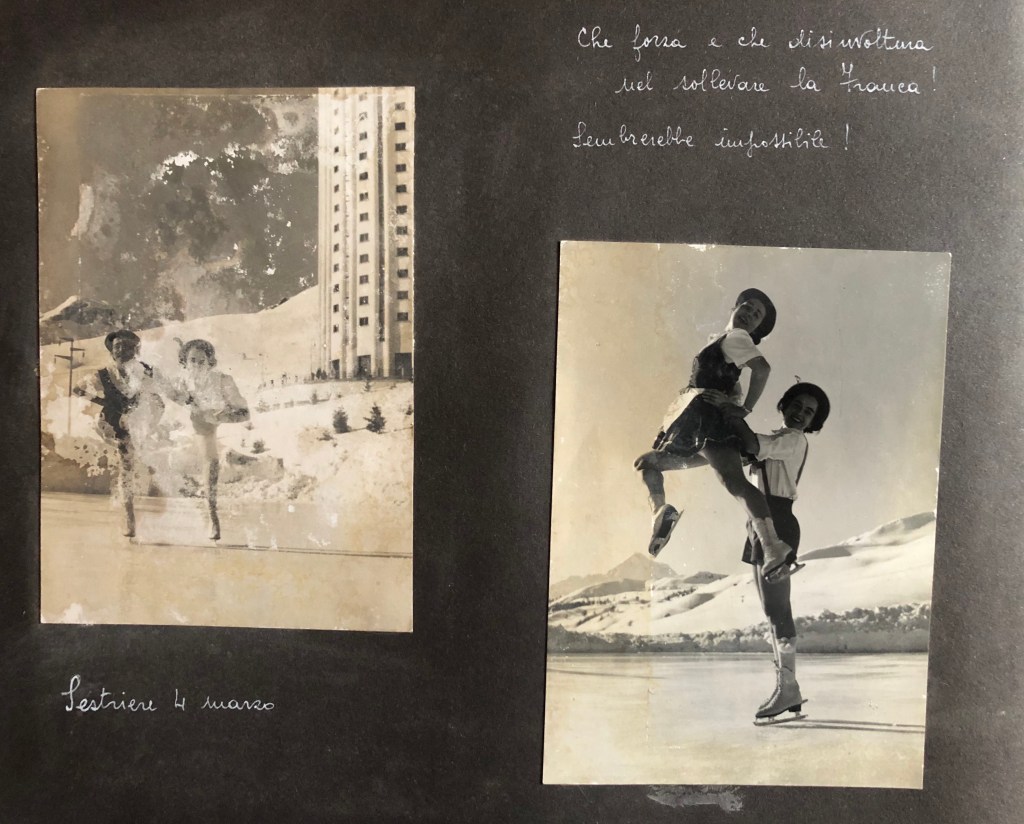 Che forza e che disinvoltura
nel sollevare la Franca!
Sembrerebbe impossibile!
Sestriere 4 marzo